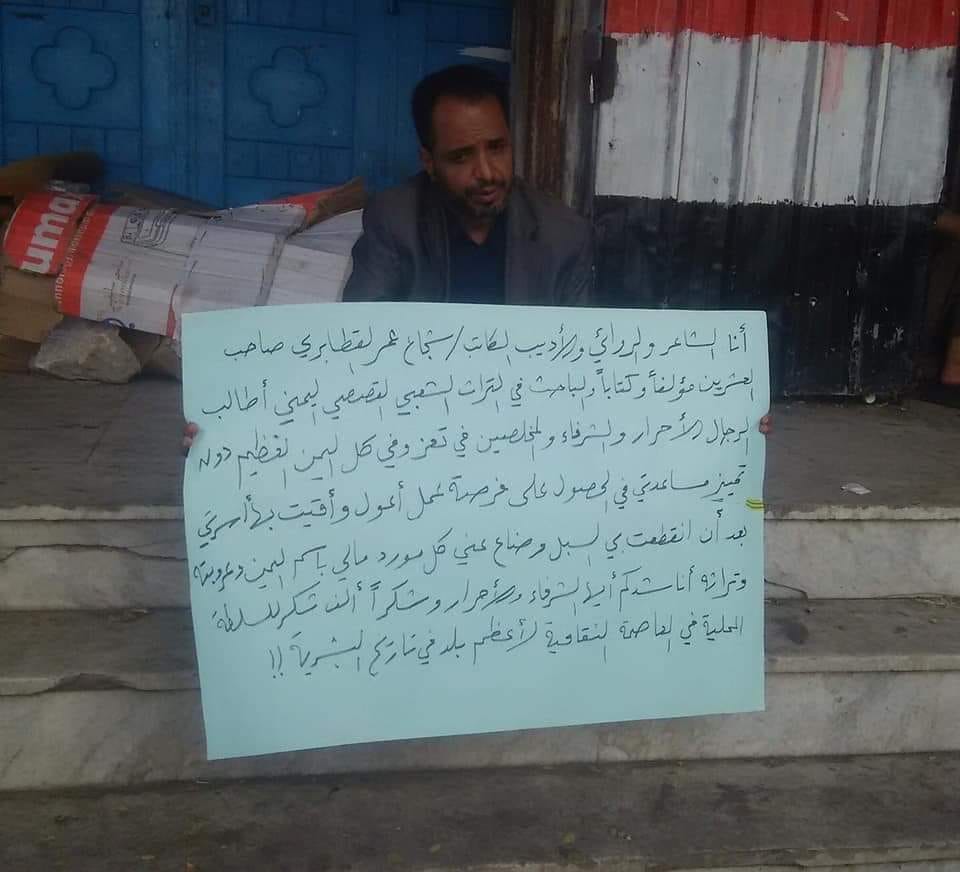 أنا الشاعر والروائي والأديب الكاتب/ شجاع عمر القطابري صاحب
العشرين مؤلفاً وكتاباً والباحث في التراث الشعبي القصصي اليمني أطالب
الرجال الأحرار والشرفاء والمخلصين في تعز وفي كل اليمن العظيم دون
تمييز مساعدتي في الحصول على فرصة عمل أعول وأقيت بها أسرتي
بعد أن انقطعت بي السبل وضاع عني كل مورد مالي باسم اليمن وعروبته
وتراثه أناشدكم أيها الشرفاء والأحرار وشكراً ألف شكر للسلطة
المحلية في العاصمة الثقافية لأعظم بلد في تاريخ البشرية !!
uma